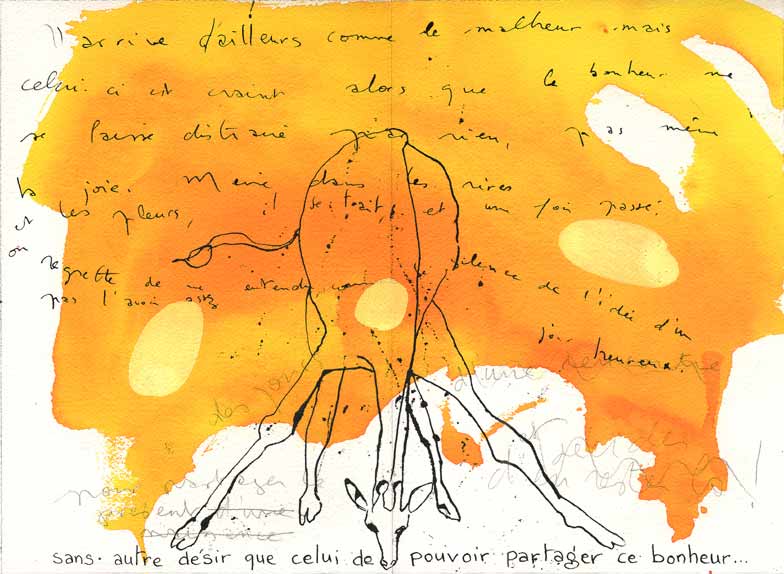 Il arrive d'ailleurs comme le malheur mais
celui-ci est craint alors que le bonheur ne
se laisse distraire par rien, pas même
la joie. Même dans les rires
et les pleurs, il se tait, et un fois passé.
on
regrette de ne entendu silence de l'idée d'un
pas l'avoir assez jour heureux.
Les d'une rencontre
pour partager le
présent d'une
naissance
sans autre désir que celui de pouvoir partager ce bonheur...